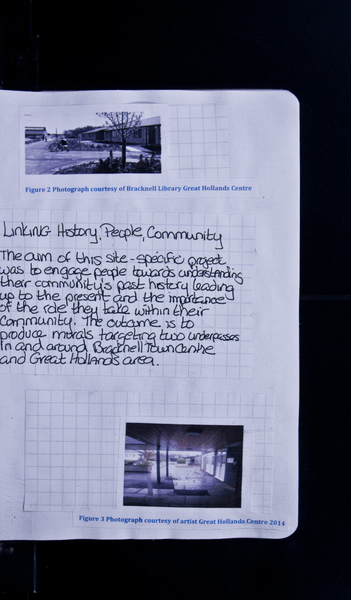 Figure 2 Photograph courtesy of Bracknell Library Great Hollands Centre
Linking History, People, Community
The aim of this site-specific project
was to engage people towards understanding
their community's past history leading
up to the present and the importance
of the role they take within their
community. The outcome is to
produce murals targeting two underpasses
in and around Bracknell Town Centre
and Great Hollands area.
Figure 3 Photograph courtesy of artist Great Hollands Centre 2014